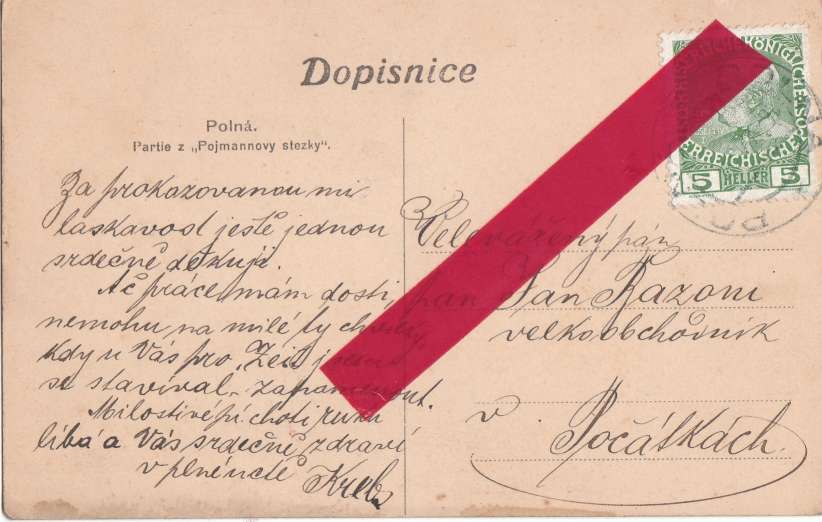 Dopisnice
Polná.
Partie z „Pojmannovy stezky“.
Za prokazovanou mi
laskavost ještě jednou
srdečně děkuji.
Ač práce mám dosti,
nemohu na milé ty chvilky,
kdy u Vás pro „Zeit“ jsem
se stavíval, zapomenout.
Milostivé pí choti ruku
líbá a Vás srdečně zdraví
v plné úctě Krebs
Velevážený pan
pan Jan Razoni
velkoobchodník
v Počátkách.
5 HELLER 5